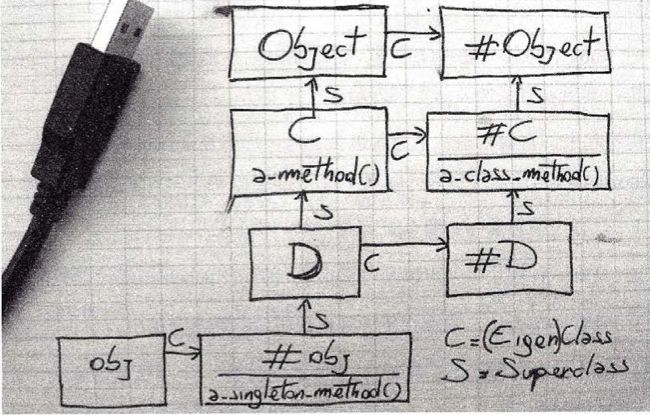 Object
C
#Object
S
S
C
a-method()
C
#C
a-class-method()
S
S
D
C
#D
S
obj
C
#obj
a-singleton-method()
C=(Eigen)Class
S=Superclass